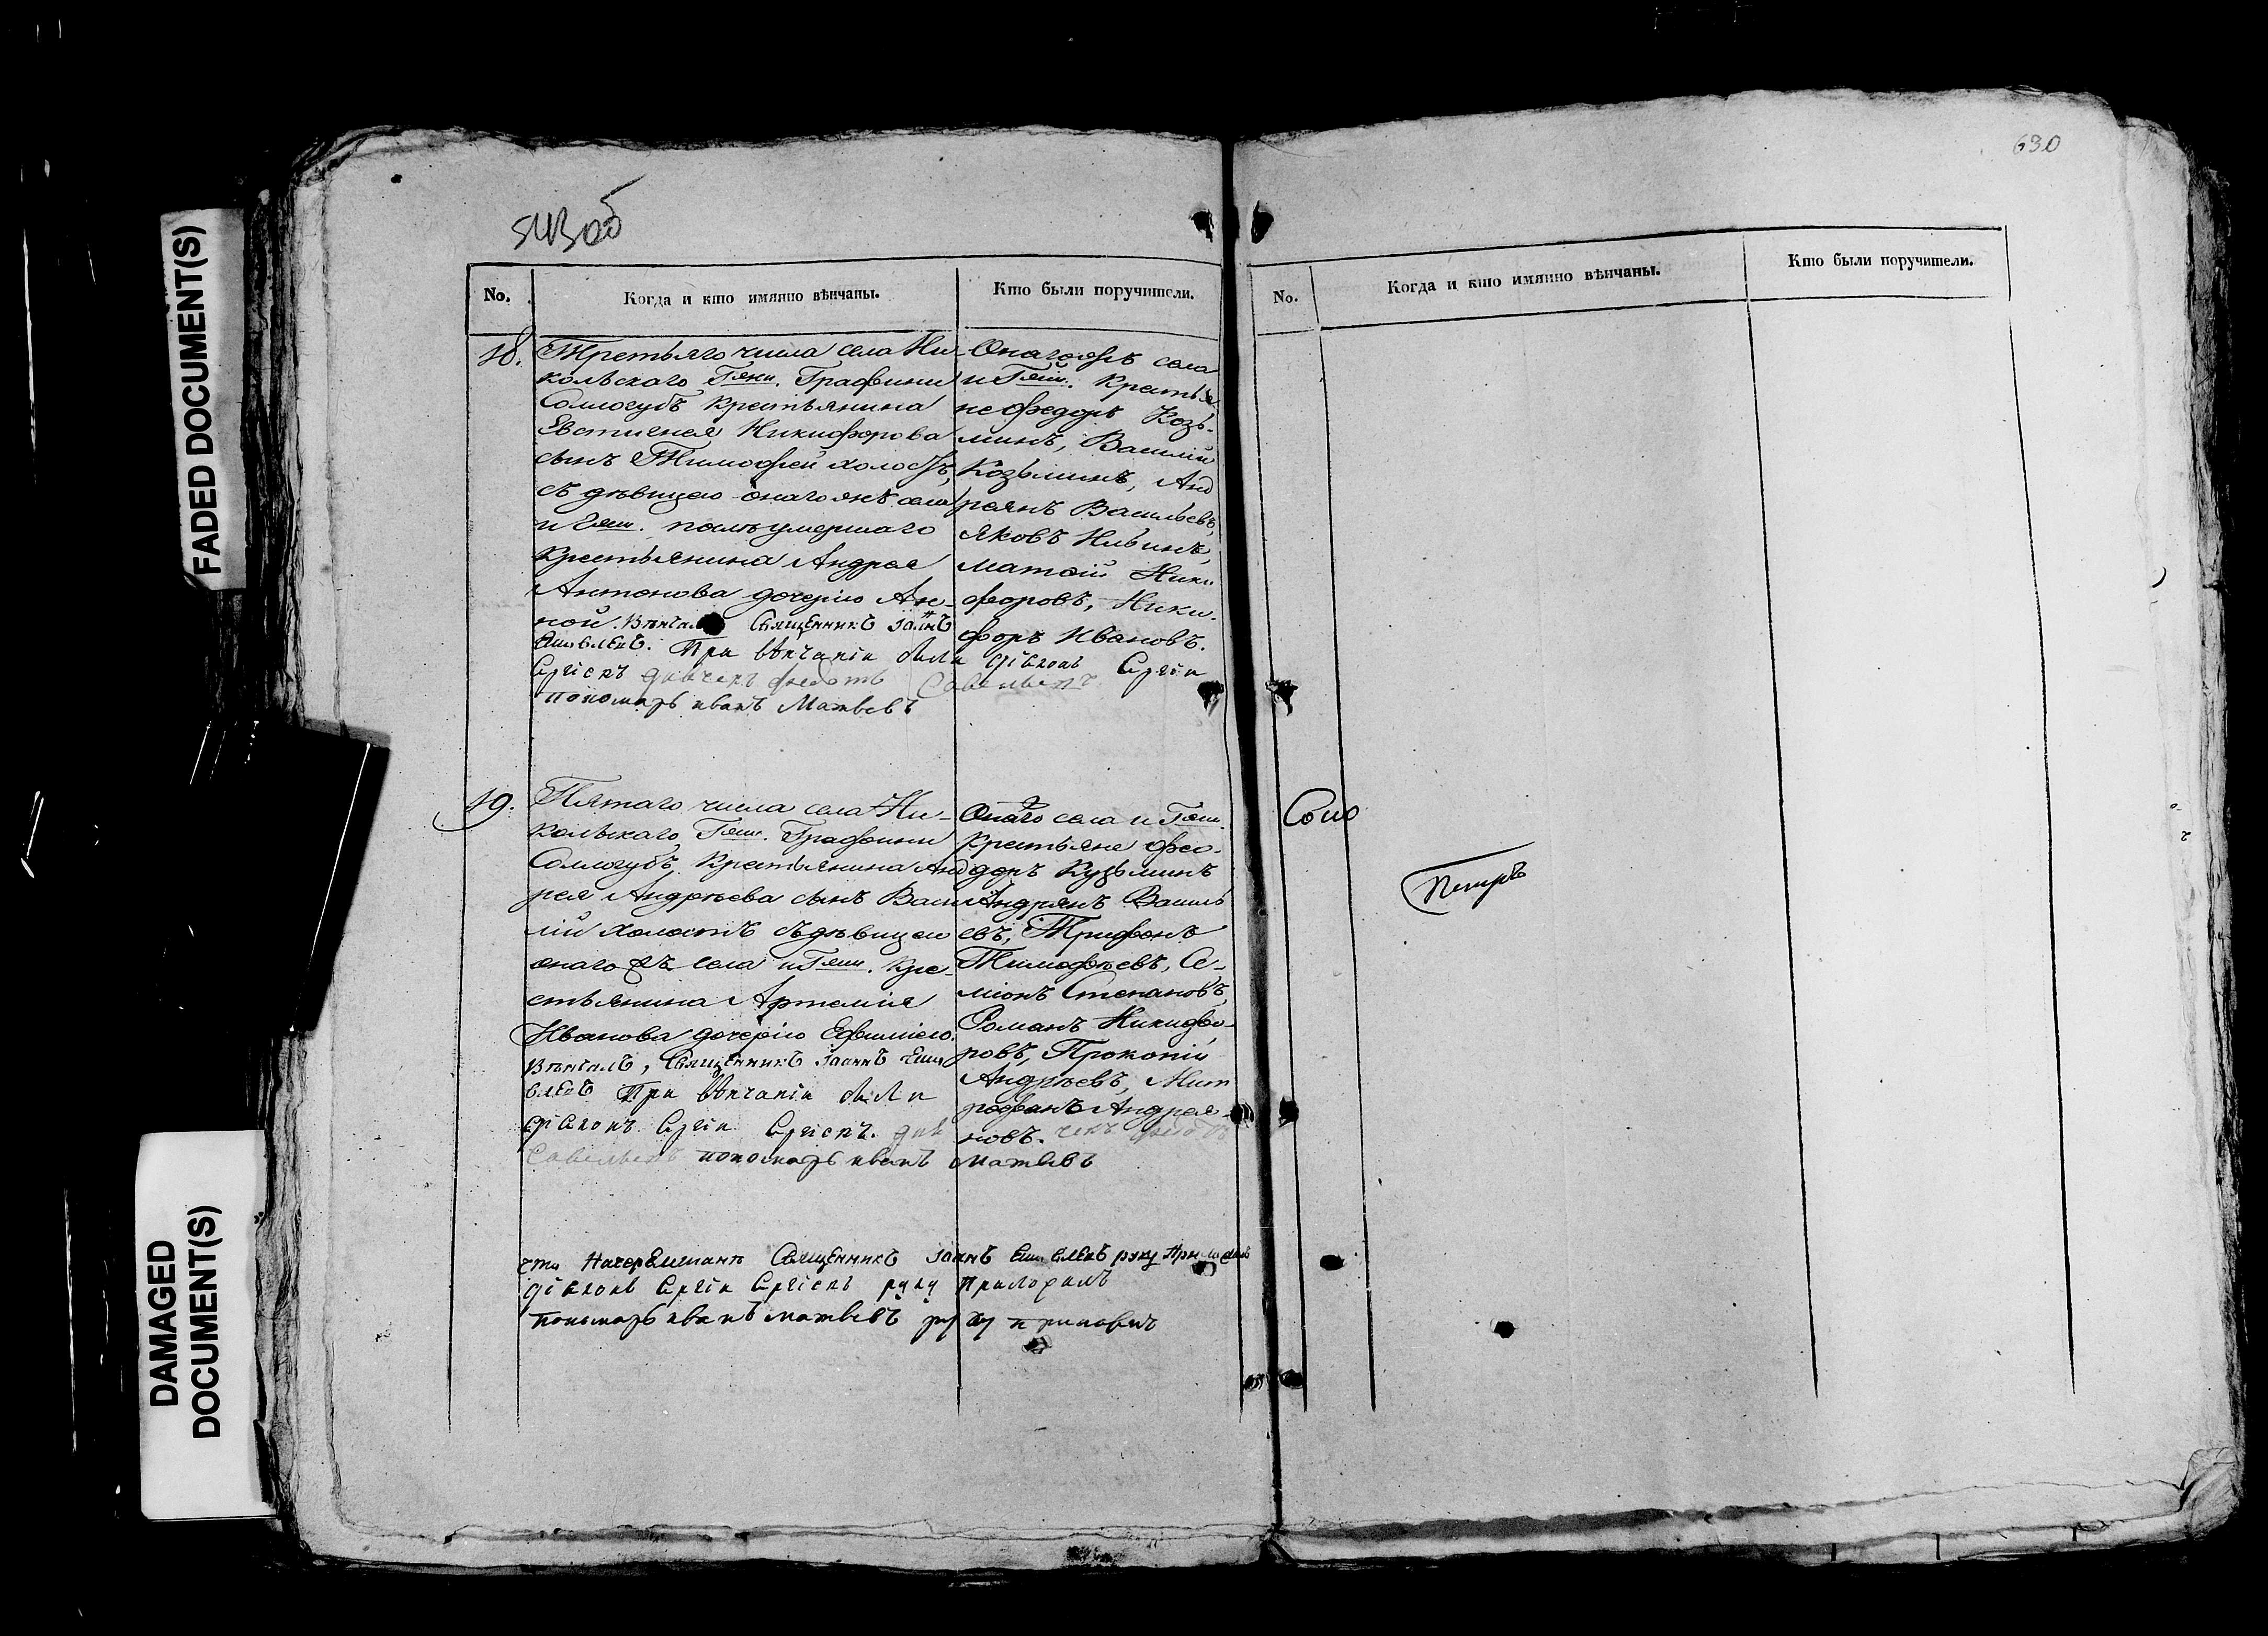 FADED DOCUMENT(S)
DAMAGED
DOCUMENT(S)
543об
No.
Когда и кто имянно вѣнчаны.
Кто были поручители.
18.
Третьяго числа села Ни-
кольскаго Гжи. Графини
Соллогубъ крестьянина
Евстигнея Никифорова
сынъ Тимофей холостъ,
съ дѣвицею онаго же села
и Гжи. помѣ умершаго
крестьянина Андрея
Антонова дочерью Ан-
ной. Вѣнчалъ Священникъ Іоаннъ
При вѣнчаніи были діаконъ Сергій
Савельевъ
пономарь иванъ Матвевъ
Онаго жъ села
и Гжи. крестья
не Федоръ Козь-
минъ, Василій
Козьминъ, Анд
реянъ Васильевъ,
Яковъ Ильинъ,
Матвій Ники
форовъ, Ники-
форъ Ивановъ.
19.
Пятаго числа села Ни-
кольскаго Гжи. Графини
Соллогубъ, крестьянина Анд
рея Андрѣева сынъ Васи
лій холостъ съ дѣвицею
онаго жъ села и Гжи. Кре-
стьянина Артемія
Иванова дочерью Ефиміею.
Вѣнчалъ, Священникъ Іоаннъ
При вѣнчаніи были
діаконъ Сергій
Савельевъ пономарь иванъ Матвевъ
Онаго села и Гжи.
Крестьяне Фео-
доръ Кузьминъ
Андрянъ Василь
евъ, Трифонъ
Тимофѣевъ, Се-
міонъ Степановъ,
Романъ Никифо-
ровъ, Прокопій
Андрѣевъ, Мит
рофанъ Андрея-
новъ.
Священникъ Іоаннъ руку приложилъ
діаконъ Сергій руку приложилъ
пономарь иванъ матвевъ руку приложилъ
630
No.
Когда и кто имянно вѣнчаны.
Кто были поручители.
Петръ